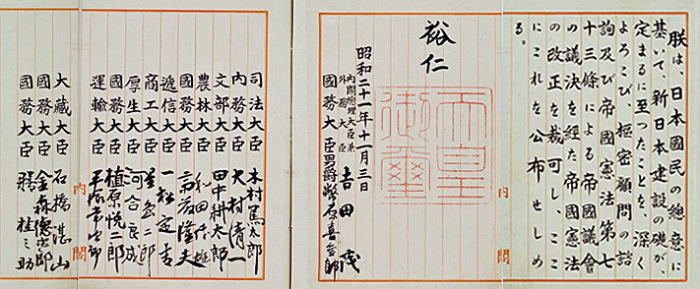 朕は、日本國民の總意に
基いて、新日本建設の礎が、
定まるに至つたことを、深く
よろこび、樞密顧問の諮
詢及び帝國憲法第七
十三條による帝國議會
の議決を經た帝國憲法
の改正を裁可し、ここ
にこれを公布せしめ
る。
裕仁
天皇
御璽
昭和二十一年十一月三日
內閣總理大臣兼
外務大臣 吉田茂
國務大臣 男爵 幣原喜重郎
司法大臣 木村篤太郎
內務大臣 大村清一
文部大臣 田中耕太郎
農林大臣 和田博雄
國務大臣 斎藤隆夫
遞信大臣 一松定吉
商工大臣 星島二郎
厚生大臣 河合良成
國務大臣 植原悅二郎
運輸大臣 平塚常次郎
大藏大臣 石橋湛山
國務大臣 金森德次郎
國務大臣 膳桂之助
內閣
內閣